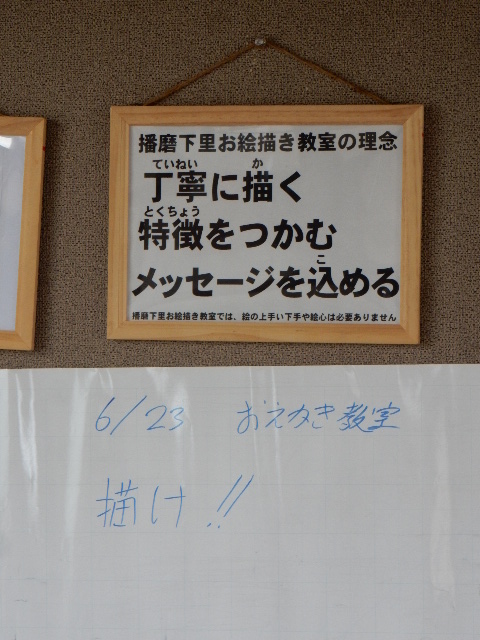 播磨下里お絵描き教室の理念
ていねい か
丁寧に描く
とくちょう
特徴をつかむ
こ
メッセージを込める
播磨下里お絵描き教室では、絵の上手い下手や絵心は必要ありません
6/23 おえかき教室
描け!!